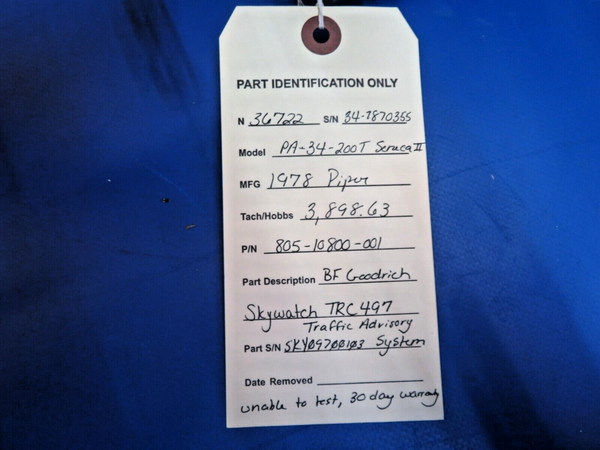 PART IDENTIFICATION ONLY
N 36722 S/N 34-7870355
Model PA-34-200T Seneca II
MFG 1978 Piper
Tach/Hobbs 3,898.63
P/N 805-10800-001
Part Description BF Goodrich
Skywatch TRC497
Traffic Advisory
Part S/N SKY09700103 System
Date Removed
unable to test, 30 day warranty